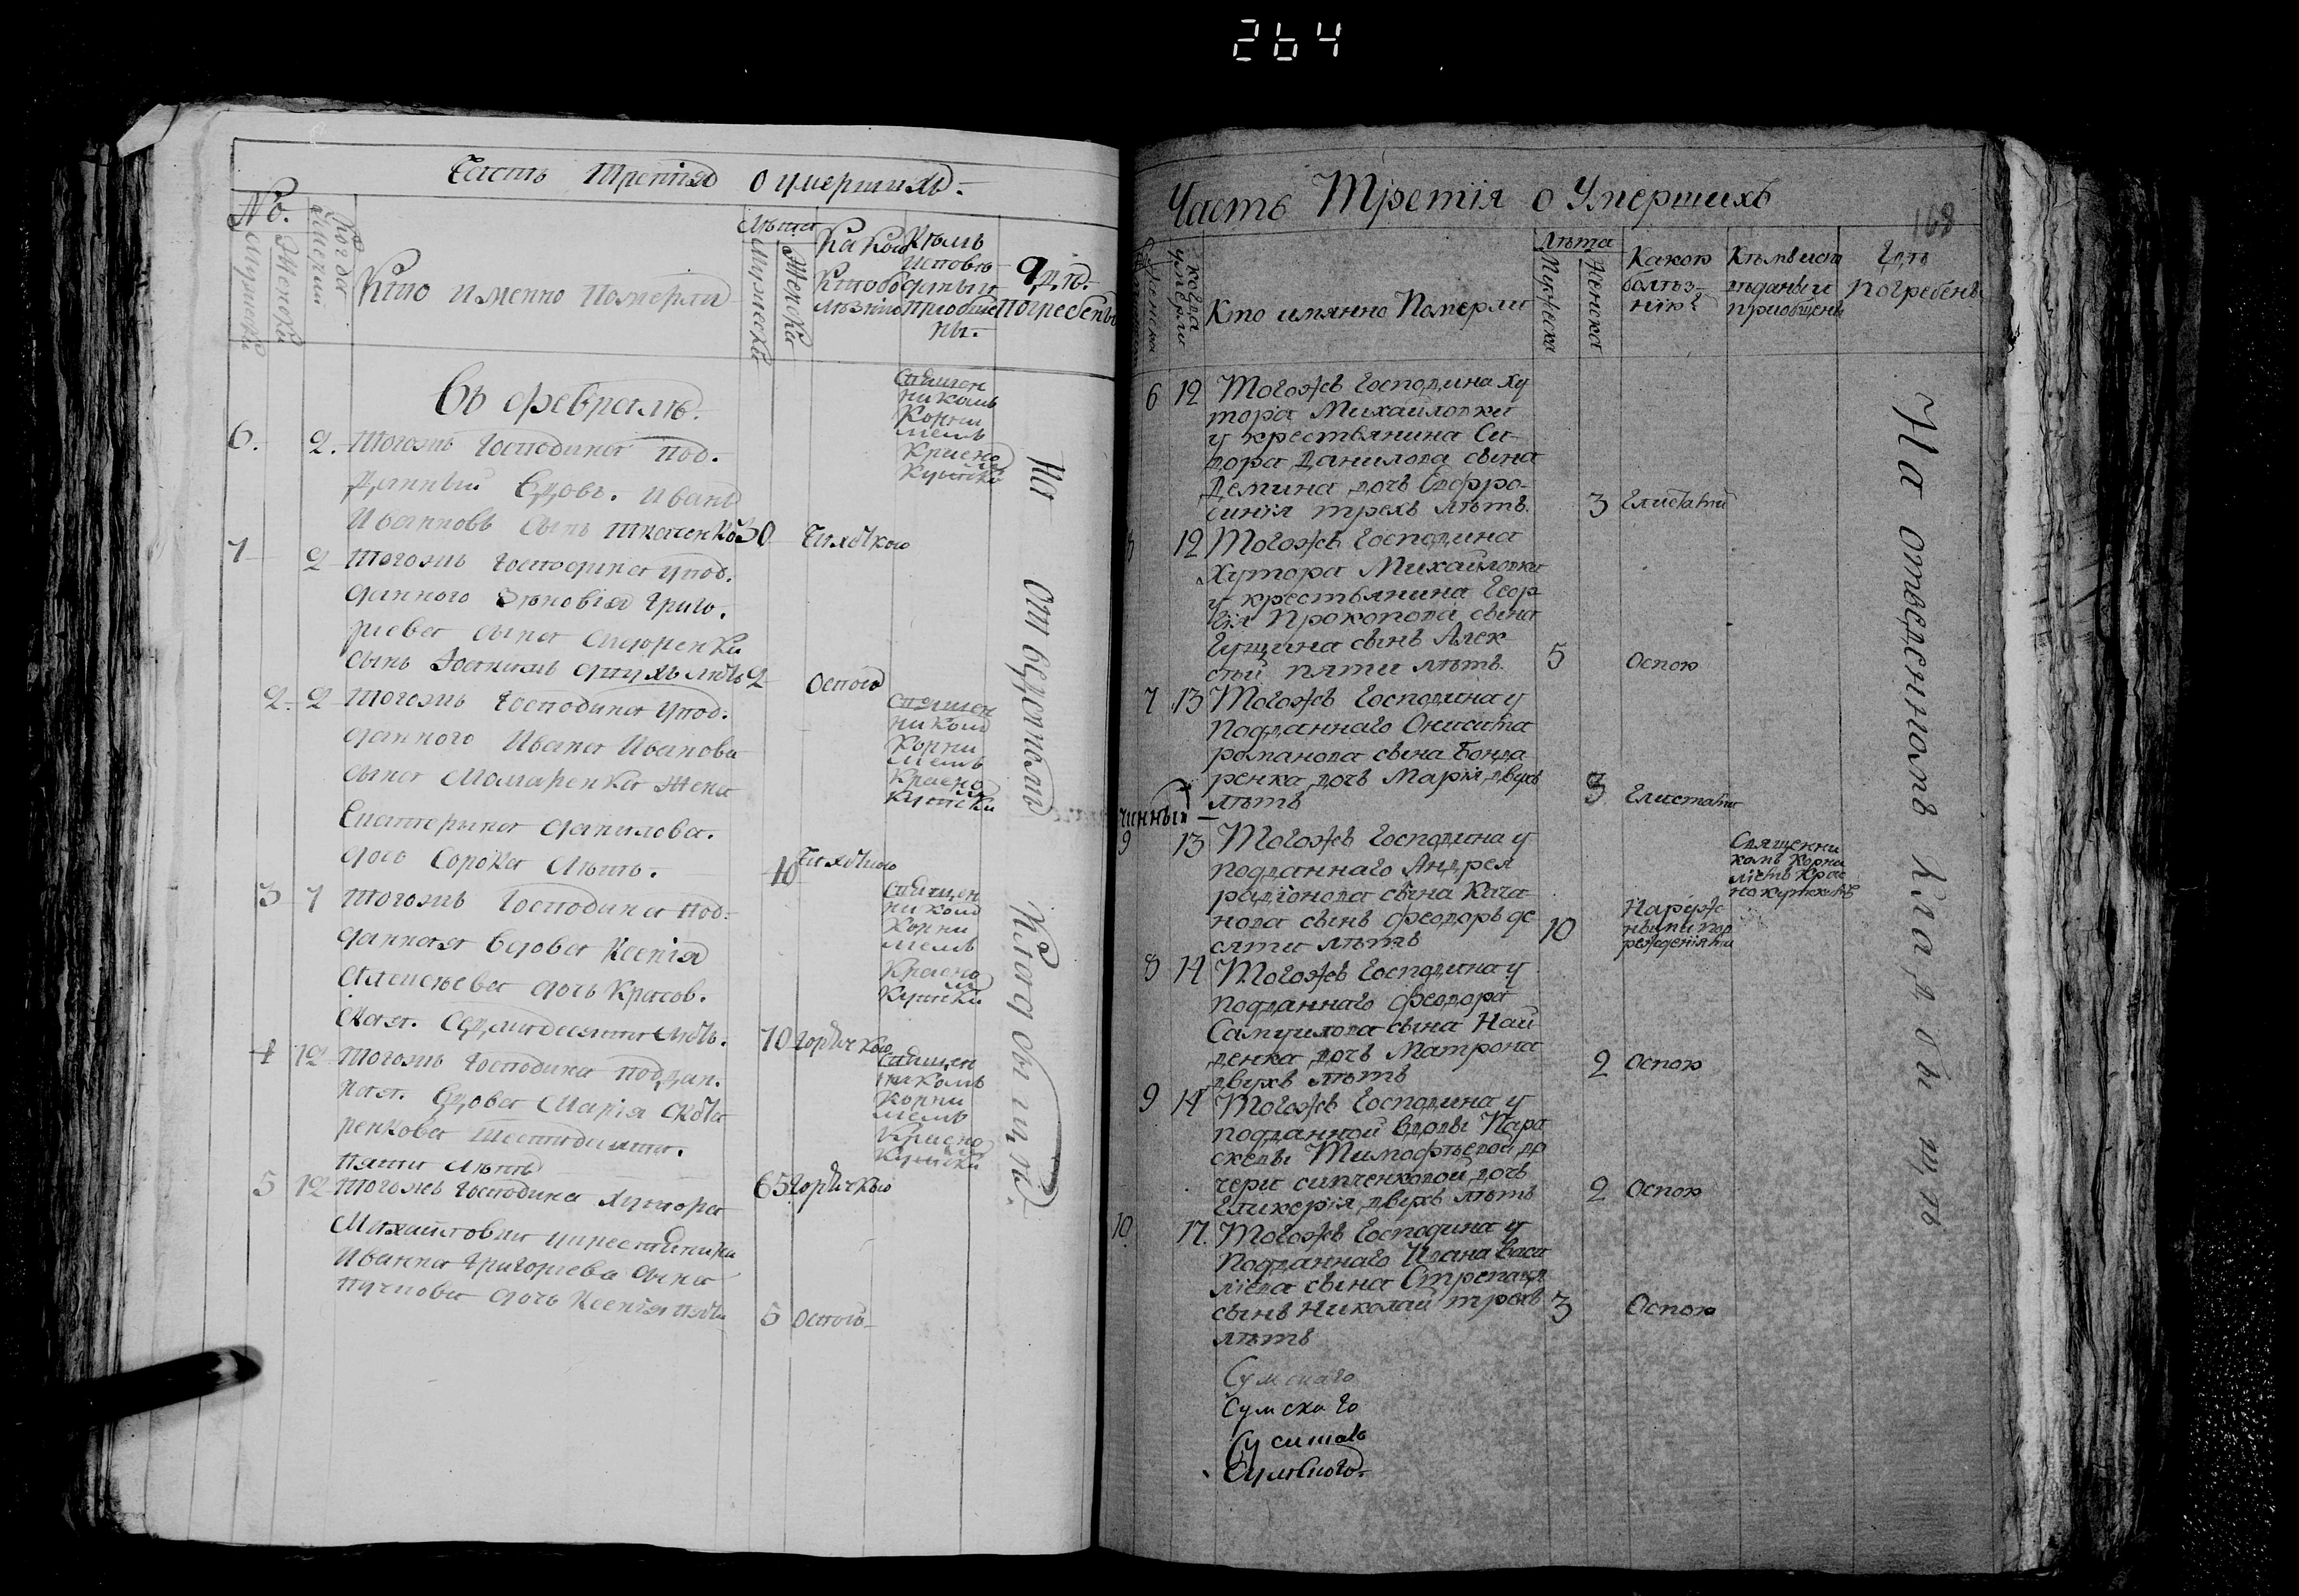 264
Часть Третія о умершихъ.
No.
Мужеска
Женска
Когда умерли
Кто именно Померли
Лѣта
Мужеска
Женска
Какою
болѣзнію
Кѣмъ
исповѣ
даны и
приобще
ны.
Гдѣ
погребены
Въ февралѣ.
Священ
никомъ
Корни
ліемъ
Красно
кутски
6. 2. Тогожъ Господина под.
данный Вдовъ. Иванъ
Ивановъ сынъ Ткаченко 30 Чихоткою
7 2 Тогожъ Господина у под.
данного Зѣновія Григо.
риева сына
сынъ двухъ лѣтъ 2 Оспою
2. 2 Тогожъ Господина у под.
данного Ивана Иванова
сына жена
Екатерына Данилова.
дочь Сорока Лѣтъ. 40 Чихоткою
Священ
никомъ
Корни
ліемъ
Красно
кутски
3 7 Тогожъ Господина под.
данная Вдова Ксенія
Алексѣева дочь Красов.
ская. Седмидесяти Лѣтъ. 70 горячкою
Священ
никомъ
Корни
ліемъ
Красно
кутски
4 12 Тогожъ Господина поддан.
ная. Вдова Марія
ренкова шестидесяти.
пяти лѣтъ 65 горячкою
Священ
никомъ
Корни
ліемъ
Красно
кутски
5 12 Тогожъ Господина Хутора
Михайловки у крестянина
Ивана Григориева сына
дочь Ксенія пяти 5 оспою
На отведенномъ кладбищѣ.
Часть Третія о Умершихъ
168
Женска
когда
умерли
Кто имянно Померли
Лѣта
Мужеска
Женска
Какою
болѣз-
нію
Кѣмъ испо
вѣданы и
приобщены
Гдѣ
погребены
6 12 Тогожъ Господина ху
тора Михайловки
у крестьянина Си-
дора Данилова сына
Демина дочь Евфро-
синія трехъ лѣтъ. 3 Глистами
12 Тогожъ Господина
Хутора Михайловки
у крестьянина Геор
гія Прокопова сына
Гущина сынъ Алек
сѣй пяти лѣтъ. 5 Оспою
7 13 Тогожъ Господина у
подданнаго Онисима
романова сына Бонда
ренка дочь Марія двухъ
лѣтъ 3 Глистами
чинный
9 13 Тогожъ Господина у
подданнаго Андрея
радіонова сына Кача
нова сынъ Феодоръ де
сяти лѣтъ 10
Священни
комъ Корни
ліемъ Крас
нокутскимъ
8 14 Тогожъ Господина у
подданнаго Феодора
Самуилова сына Най
денка дочь Матрона
двухъ лѣтъ 2 Оспою
9 14 Тогожъ Господина у
подданной вдовы Пара
скевы Тимофѣевой до
чери дочь
Гликерія двухъ лѣтъ 2 Оспою
10. 17. Тогожъ Господина у
подданнаго Ивана Васи
лиева сына
сынъ Николай трехъ 3 Оспою
лѣтъ
Сумскаго
Сумскаго
На отведенномъ кладбищѣ